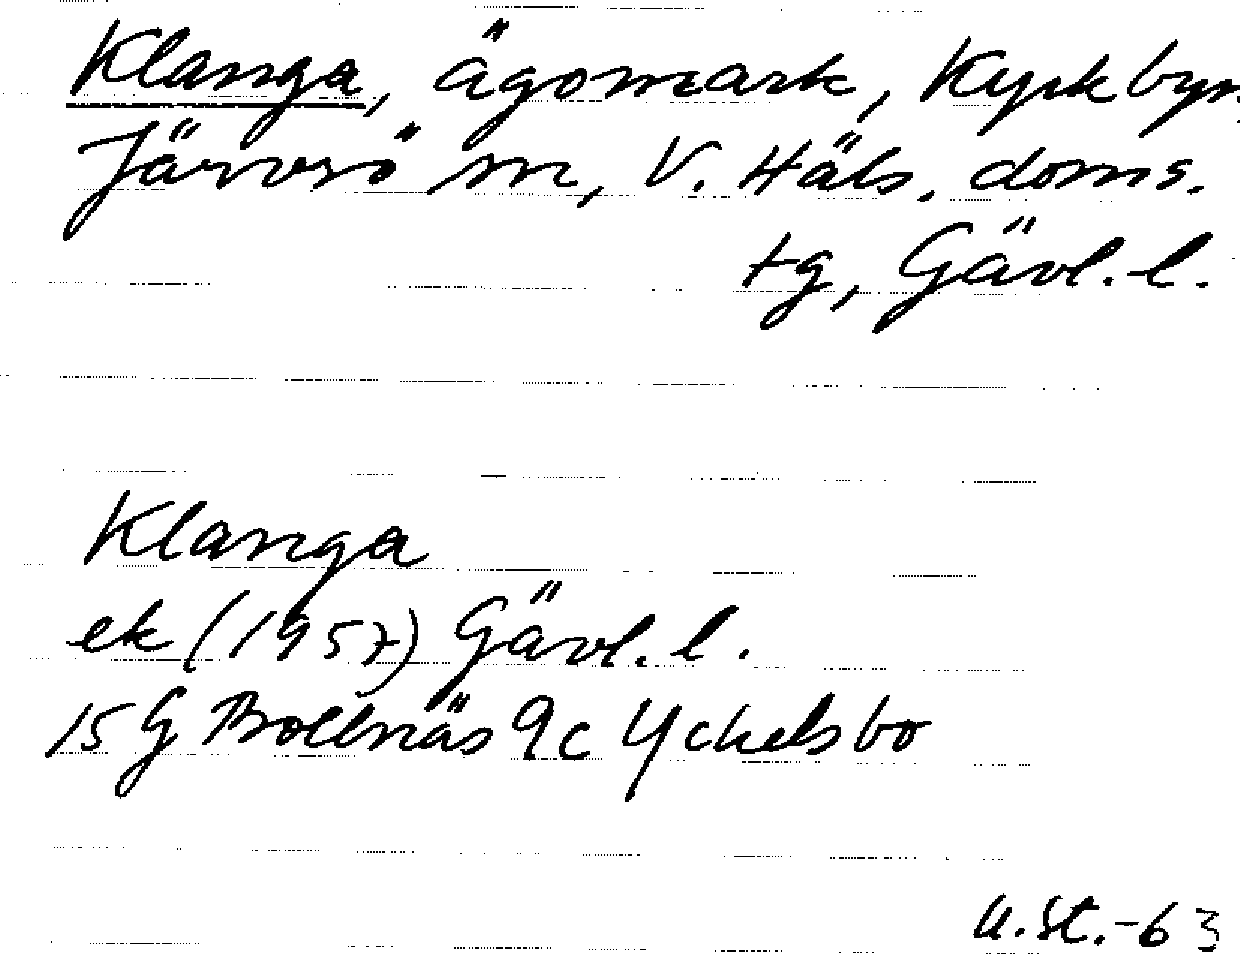 Klanga, ägomark, Kyrkbyn,
Järvsö sn, V. Häls. doms.
tg, Gävl. l.
Klanga
ek (1957) Gävl. l.
15 G Bollnäs 9c Yckelsbo
U. St. -63